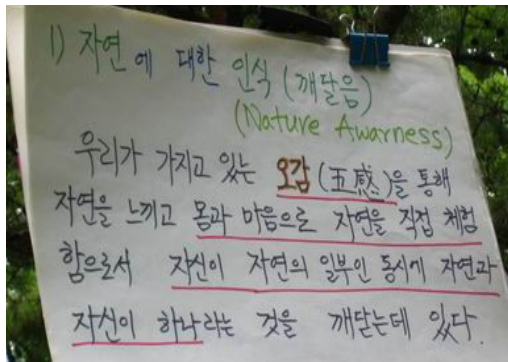 1) 자연에 대한 인식 (깨달음)
(Nature Awarness)
우리가 가지고 있는 오감 (五感)을 통해
자연을 느끼고 몸과 마음으로 자연을 직접 체험
함으로서 자신이 자연의 일부인 동시에 자연과
자신이 하나라는 것을 깨닫는데 있다.